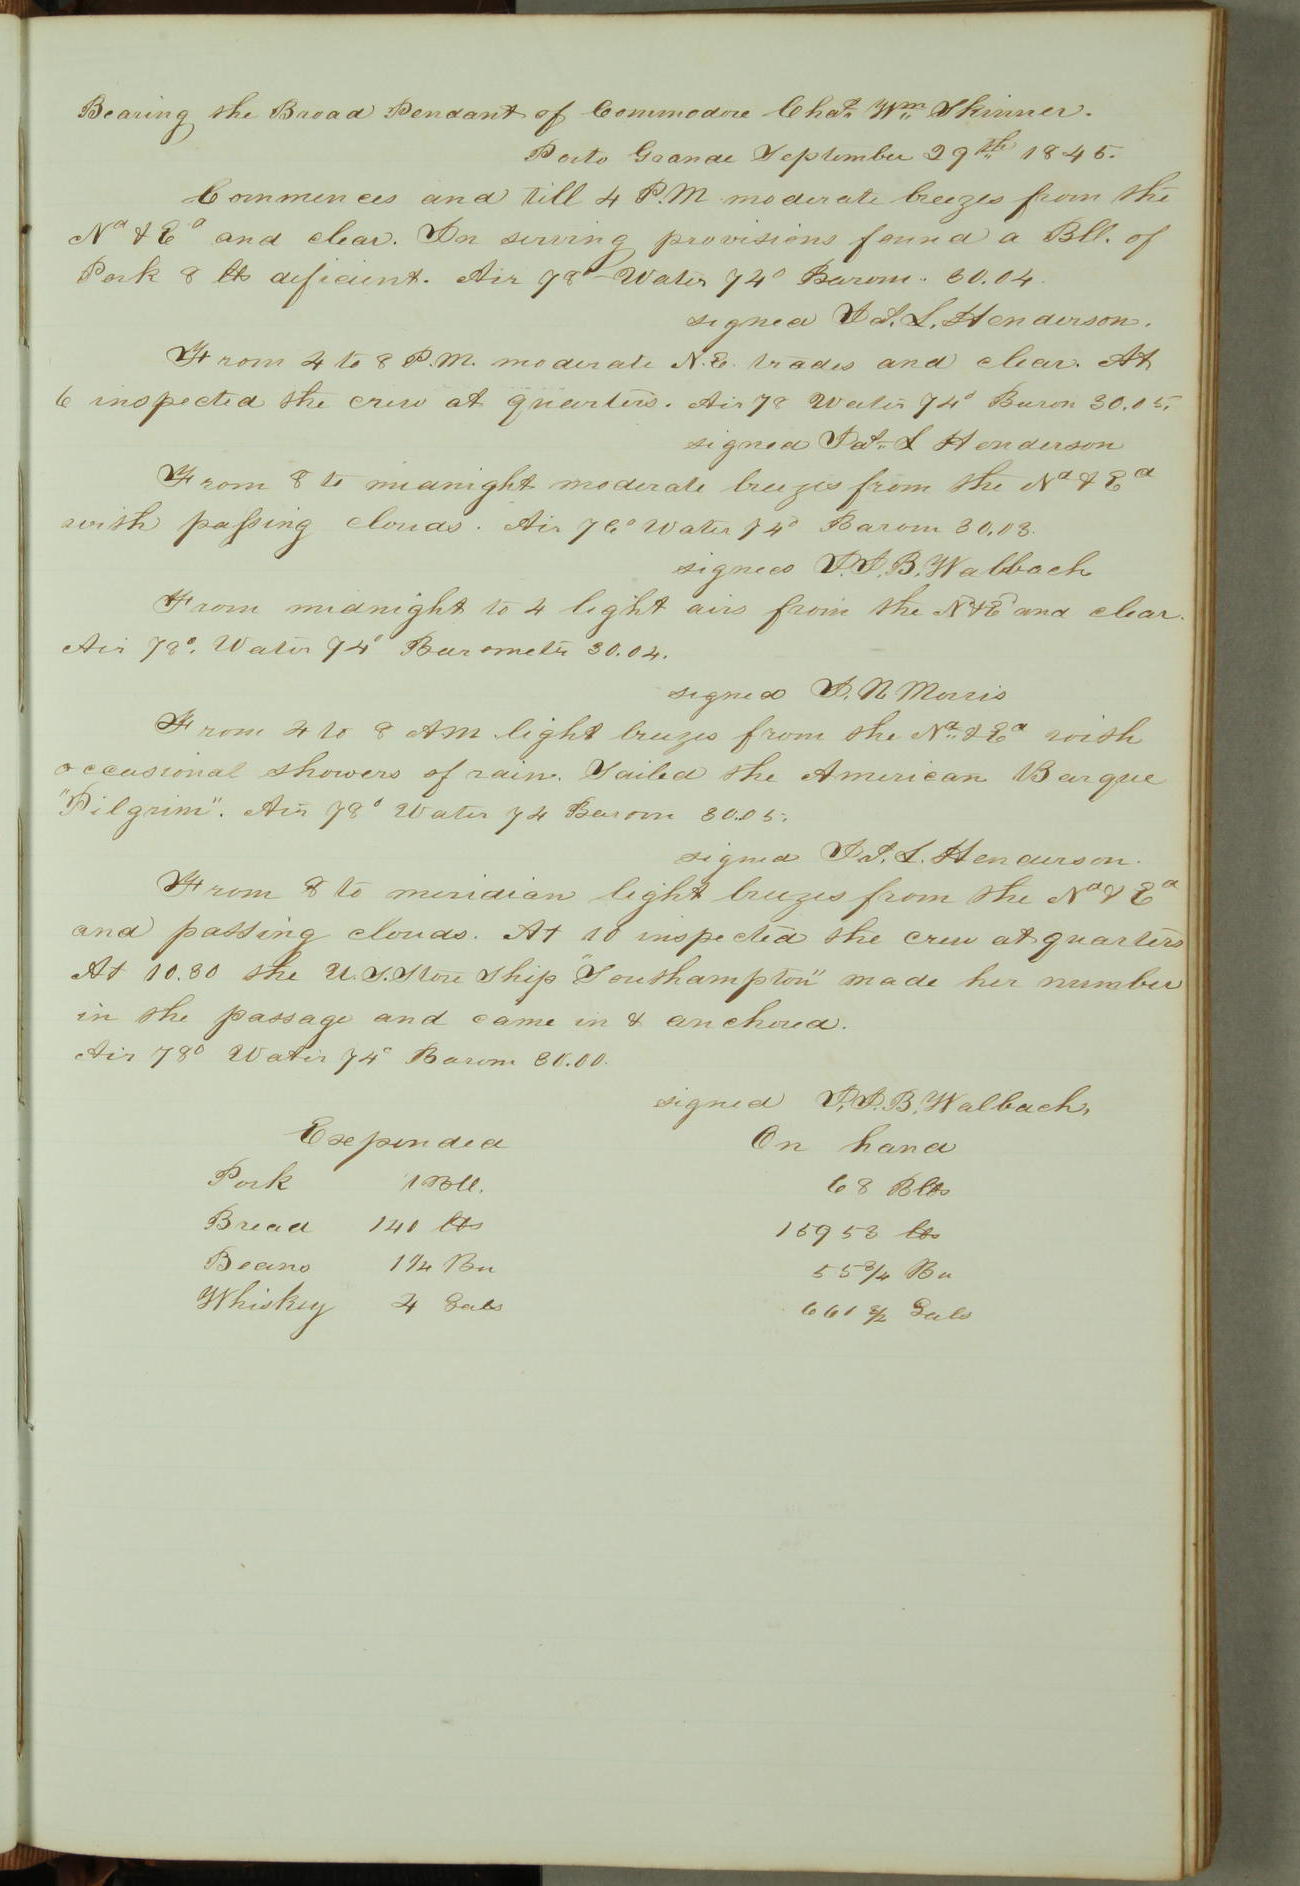 Bearing the Broad Pendant of Commodore Chas. Wm. Skinner.
Porto Grande September 29th 1845.
Commences and till 4 P.M. moderate breezes from the
Nd & Ed and clear. In serving provisions found a Bll. of
Pork 8 lbs deficient. Air 78° Water 74° Barom. 30.04.
signed Jas. L. Henderson.
From 4 to 8 P.M. moderate N.E. trades and clear. At
6 inspected the crew at quarters. Air 78 Water 74° Barom 30.05.
signed Jas. L Henderson
From 8 to midnight moderate breezes from the Nd & Ed
with passing clouds. Air 76° Water 74° Barom 30.03.
signed J.J.B. Walbach
From midnight to 4 light airs from the Nd & Ed and clear.
Air 78°. Water 74° Barometr 30.04.
signed J. N Morris
From 4 to 8 AM light breezes from the Nd & Ed with
occasional showers of rain. Sailed the American Barque
"Pilgrim". Air 78° Water 74 Barom 30.05.
signed Jas. L. Henderson.
From 8 to meridian light breezes from the Nd & Ed
and passing clouds. At 10 inspected the crew at quarters
At 10.30 the U.S. Store Ship "Southampton" made her number
in the passage and came in & anchored.
Air 78° Water 74° Barom 30.00.
signed J.J.B. Walbach,
Expended On hand
Pork 1 Bll. 68 Blls
Bread 140 lbs 15958 lbs
Beans 1 1/4 Bu 55 3/4 Bu
Whiskey 4 Gals Gals